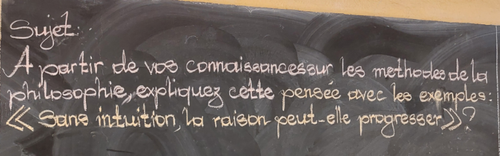 Sujet:
A partir de vos connaissances sur les méthodes de la
philosophie, expliquez cette pensée avec les exemples:
« Sans intuition, la raison peut-elle progresser » ?